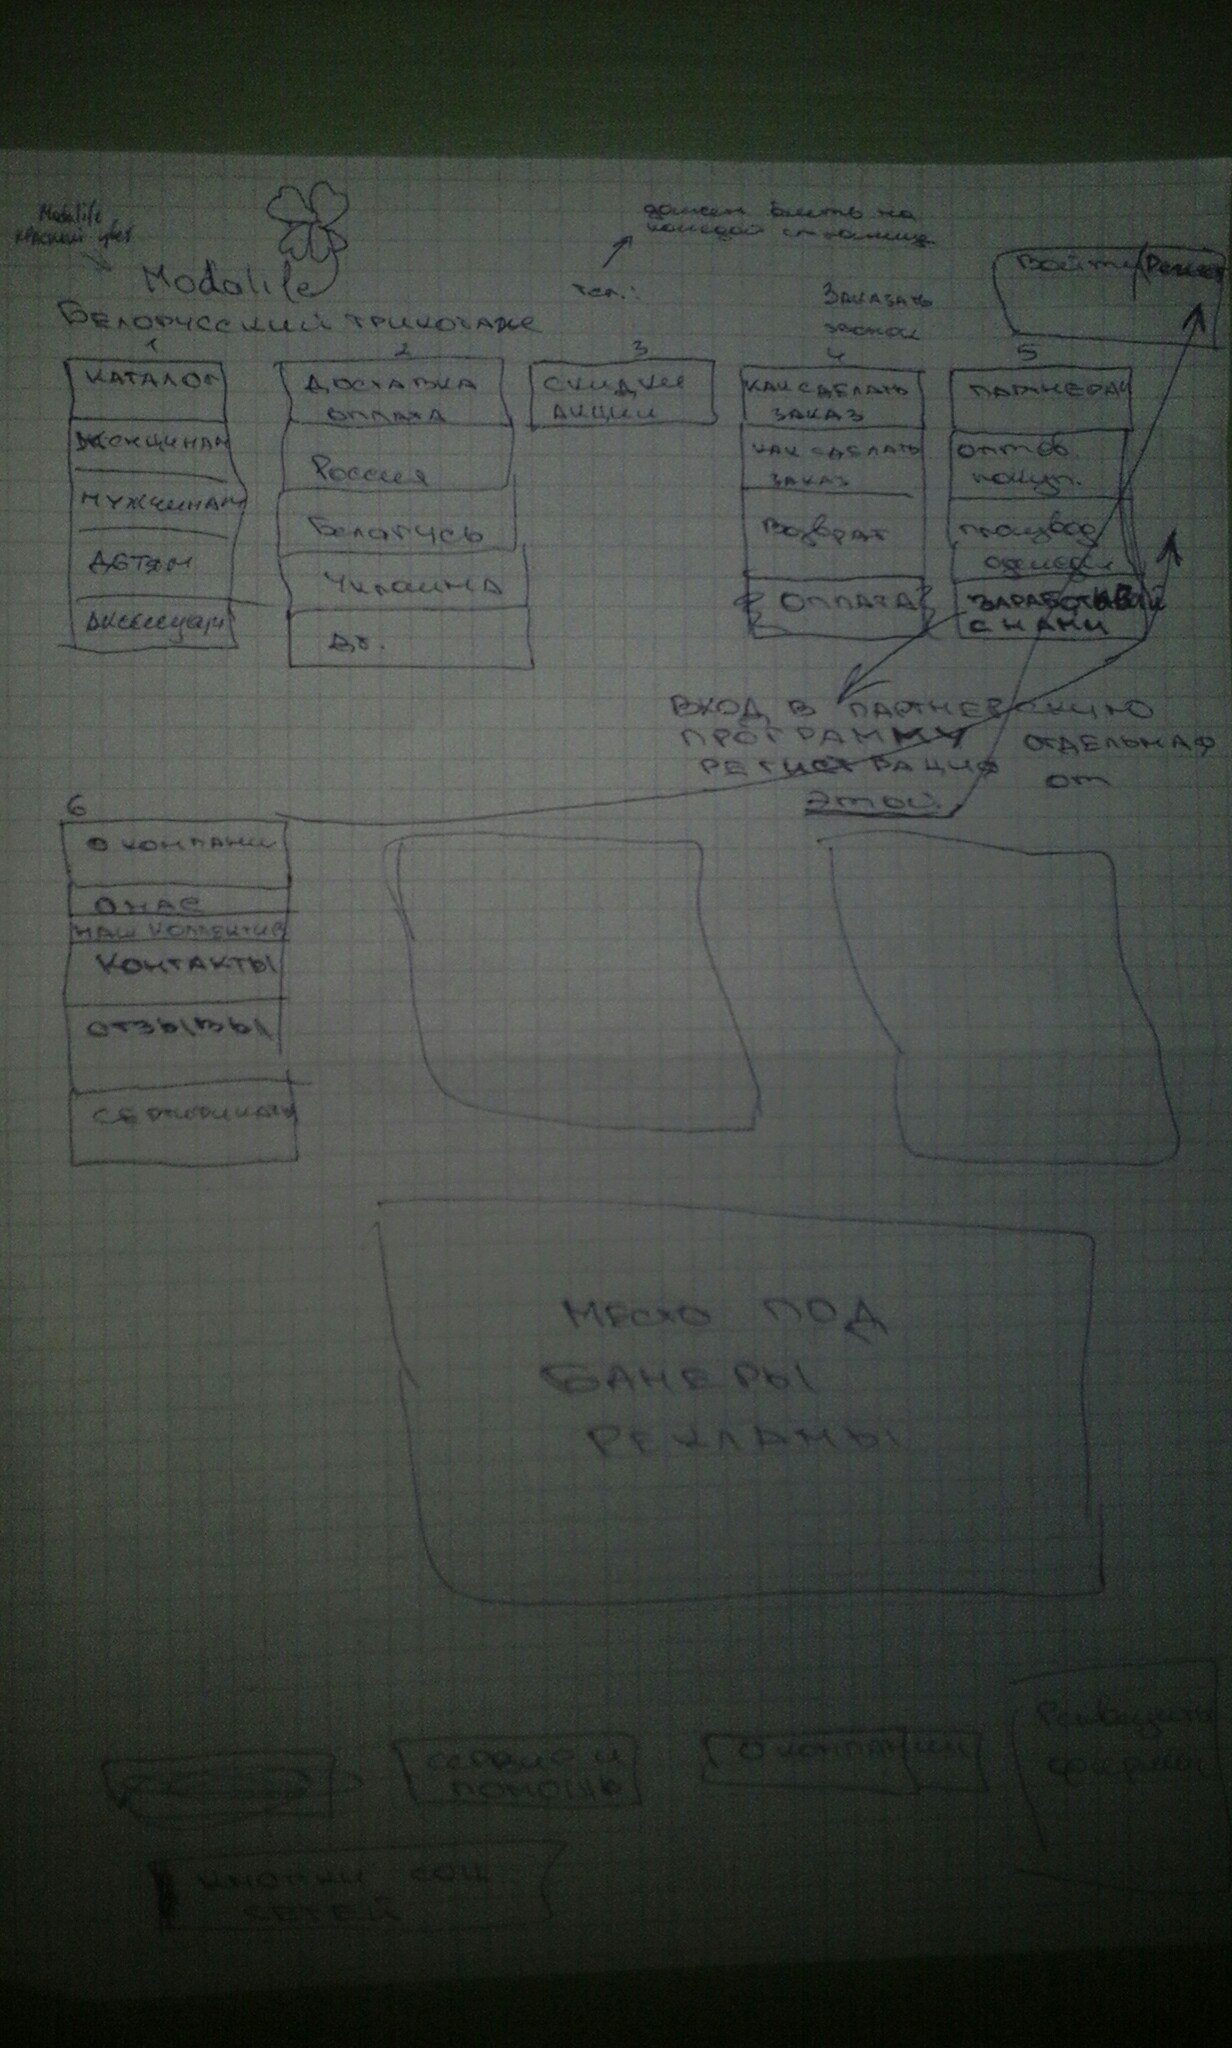 Modalife
красный цвет
Modalife
БЕЛОРУССКИЙ ТРИКОТАЖ
должен быть на
каждой странице
тел.:
ЗАКАЗАТЬ
звонок
Войти
1
2
3
4
5
КАТАЛОГ
ЖЕНЩИНАМ
МУЖЧИНАМ
ДЕТЯМ
ДОСТАВКА
ОПЛАТА
Россия
Беларусь
Украина
СКИДКИ
АКЦИИ
КАК СДЕЛАТЬ
ЗАКАЗ
КАК СДЕЛАТЬ
ЗАКАЗ
Возврат
ОПЛАТА
ПАРТНЕРАМ
оптов
покуп.
производ
одежды
ЗАРАБОТАЙ
С НАМИ
ВХОД В ПАРТНЕРСКУЮ
ПРОГРАММУ
РЕГИСТРАЦИЯ
ОТДЕЛЬНАЯ
ОТ
ЭТОЙ
6
О КОМПАНИ
О НАС
НАШ КОЛЛЕКТИВ
КОНТАКТЫ
ОТЗЫВЫ
СЕРТИФИКАТЫ
МЕСТО ПОД
БАНЕРЫ
РЕКЛАМЫ
СЕРВИС И
ПОМОЩЬ
О КОМПАНИИ
Реквизиты
фирмы
КНОПКИ СОЦ
СЕТЕЙ